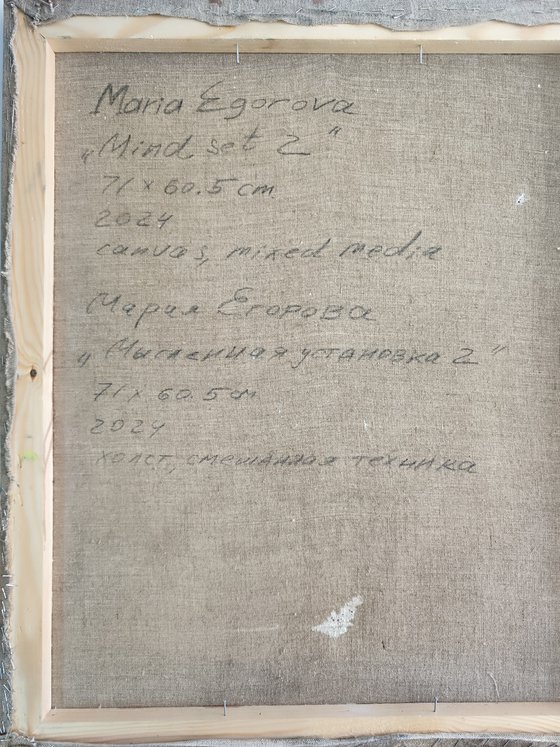 Maria Egorova
„Mind set 2"
71 x 60.5 cm
2024
canvas, mixed media
Мария Егорова
„Мысленная установка 2"
71 x 60.5 cm
2024
холст, смешанная техника